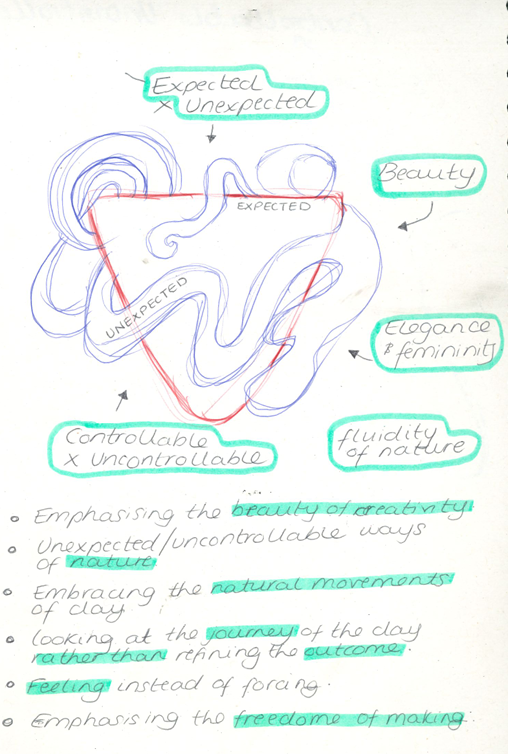 Expected
x Unexpected
Beauty
EXPECTED
UNEXPECTED
Elegance
& femininity
Controllable
x Uncontrollable
fluidity
of nature
Emphasising the beauty of creativity
Unexpected/uncontrollable ways
of nature
Embracing the natural movements
of clay
looking at the journey of the clay
rather than refining the outcome.
Feeling instead of forcing.
Emphasising the freedome of making.